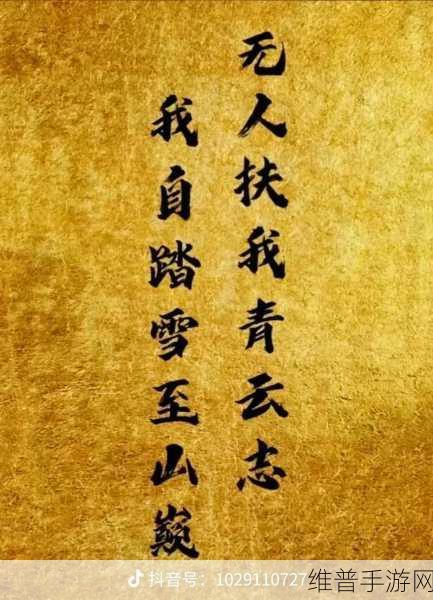 无人扶我青云志
我自踏雪至山巅
抖音号：1029110727
维普手游网